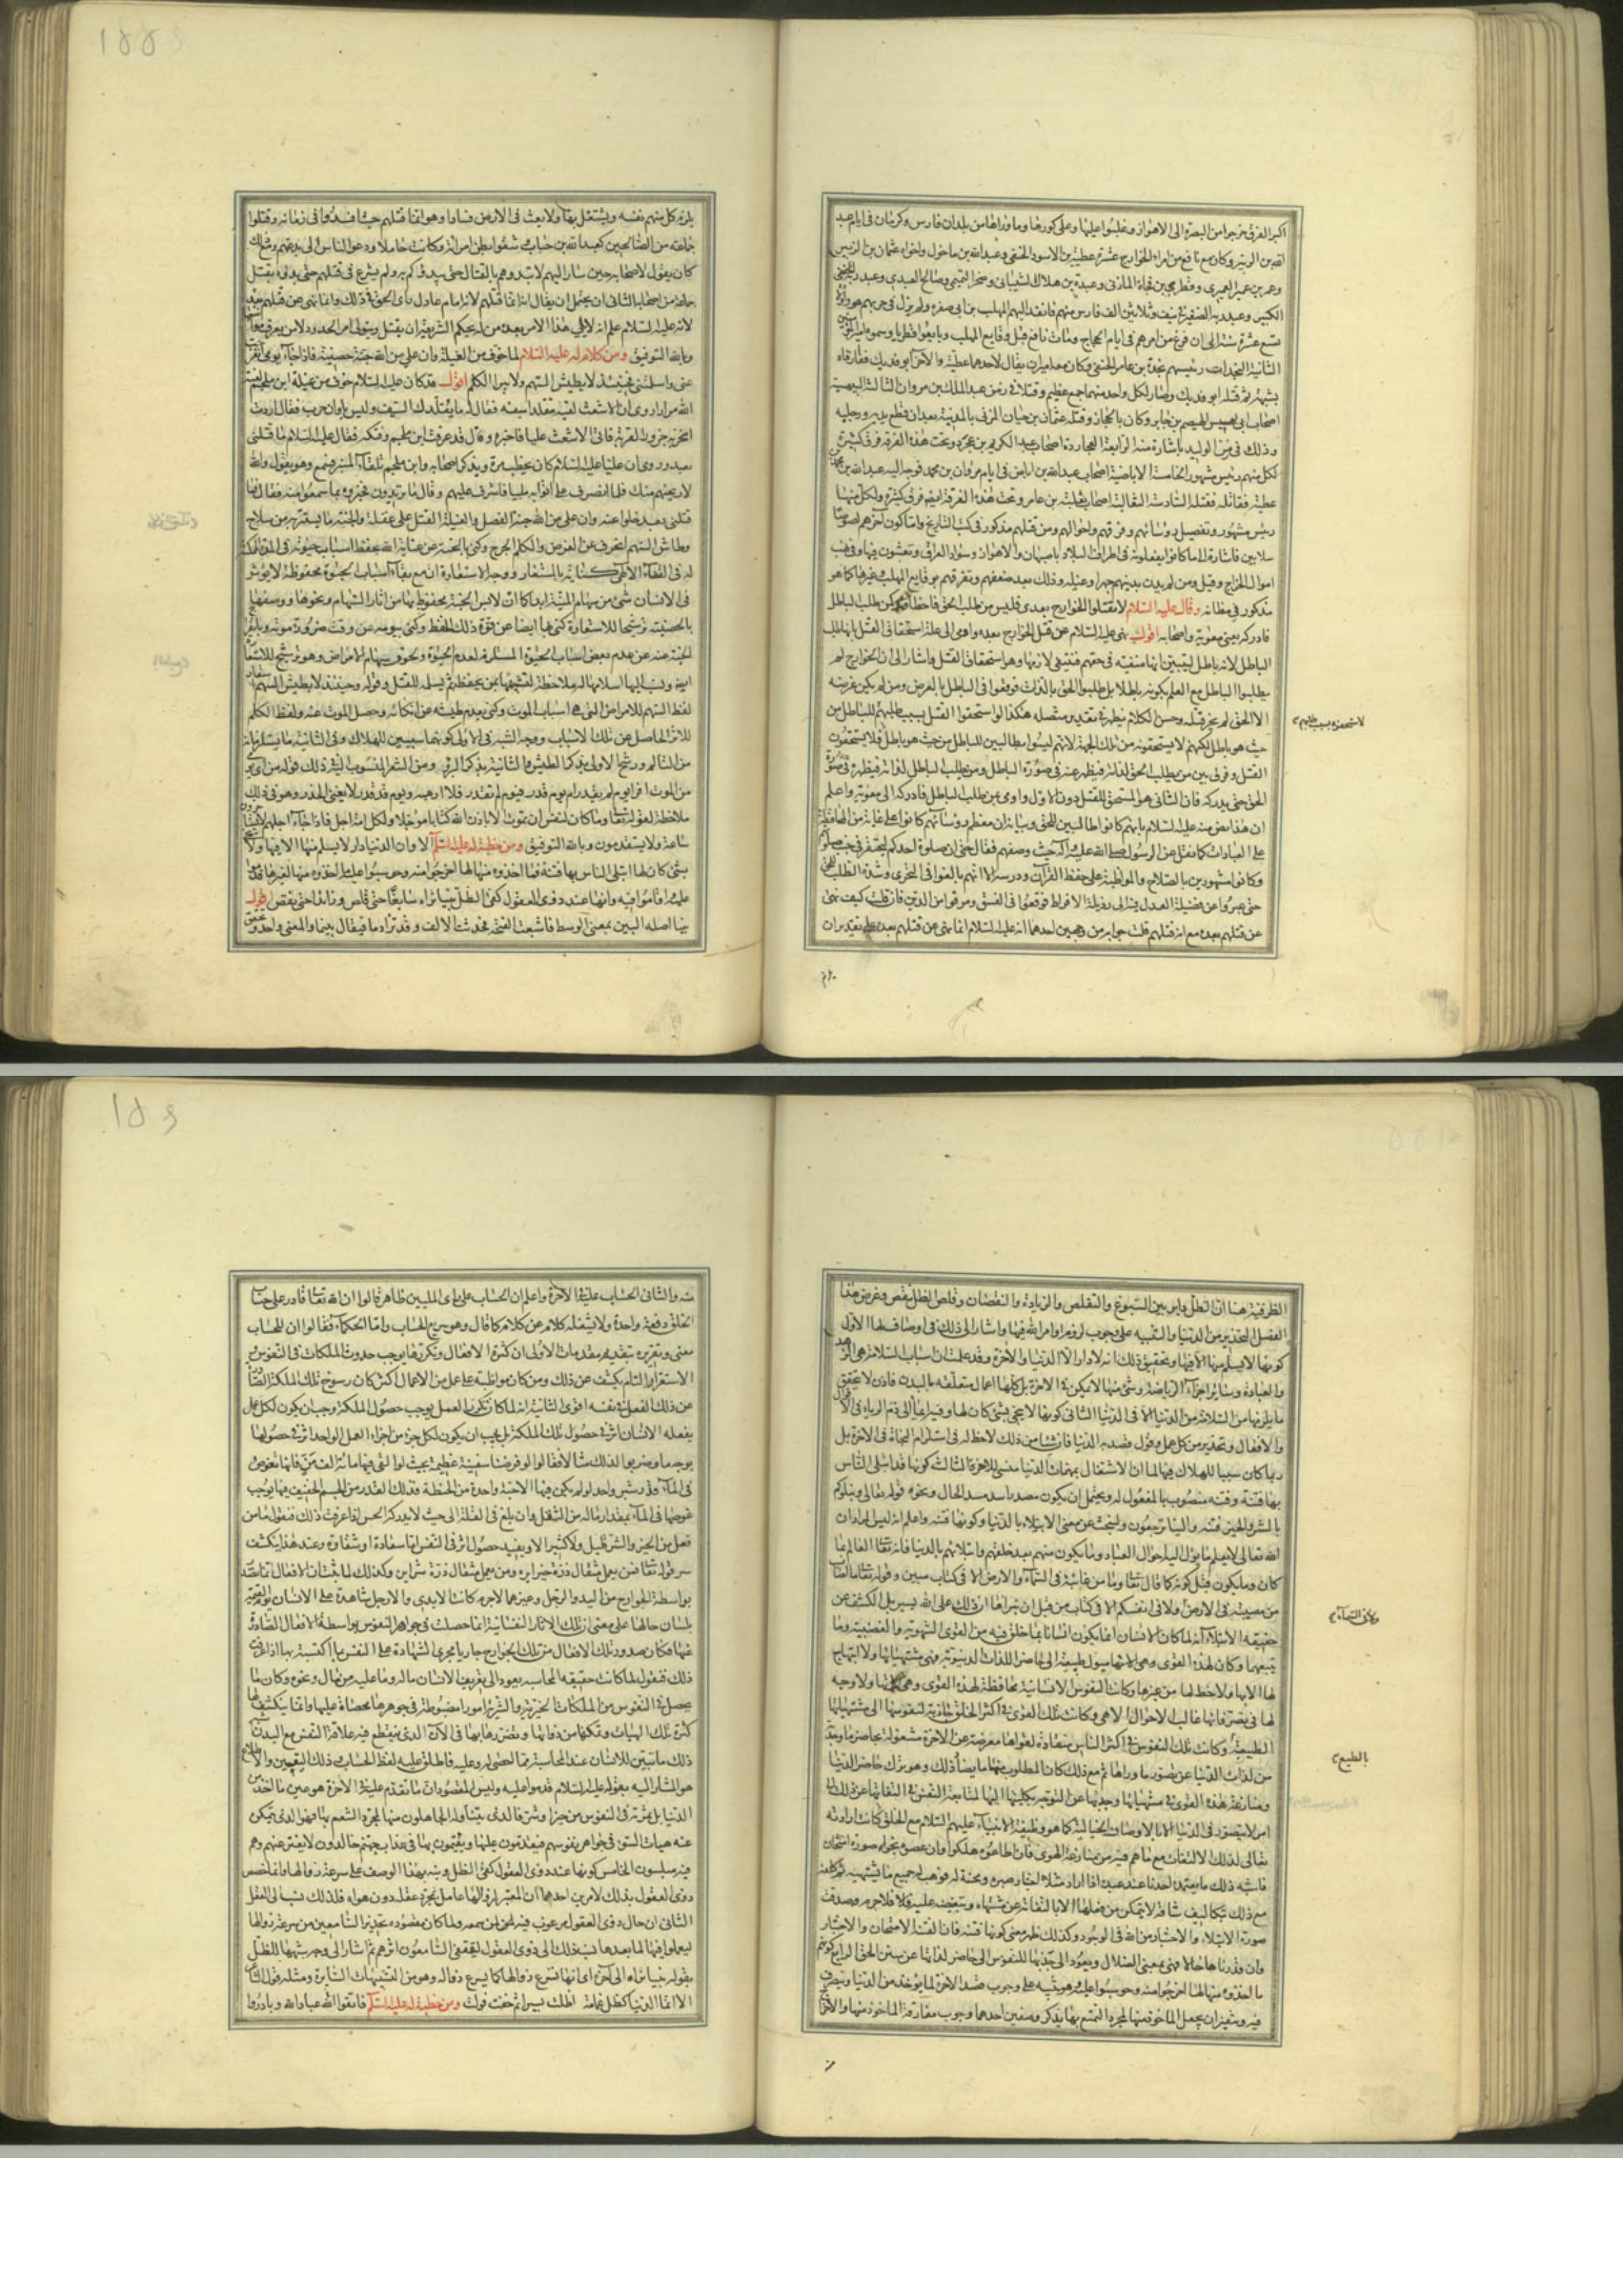 اكبر الفرق خرجوا من البصرة الى الاهواز وغلبوا عليها وعلى كورها وما وراها من بلدان فارس وكرمان فى ايام عبد
الله بن الزبير وكان مع نافع من امراء الخوارج عشرة عطية بن الاسود الحنفى وعبد الله بن ماحول واخواه عثمان بن الزبير
وعمر بن عمير العميرى وقطرى بن فجاة المازنى وعبدة بن هلال الشيبانى وصخر التميمى وصالح العبدى وعبد ربه
الكبير وعبد ربه الصغير فى نيف وثلاثين الف فارس منهم فانفذ اليهم المهلب بن ابى صفره ولم يزل فى حربهم هو
تسع عشرة سنة الى ان فرغ من امرهم فى ايام الحجاج ومات نافع قبل وقايع المهلب وبايعوا قطريا وسموه امير
الثانية النجدات رئيسهم نجدة بن عامر الحنفى وكان معه اميران يقال لاحدهما عطية والاخر ابو فديك ففارقاه
بشبهة ثم قتله ابو فديك وصار لكل واحد منهما جمع عظيم وقتلا فى زمن عبد الملك بن مروان الثالثة البيهسية
اصحاب ابى بيهس الهيصم بن جابر وكان بالحجاز وقتله عثمان بن حيان المزنى بالمدينة بعد ان قطع يديه ورجليه
وذلك فى زمن الوليد باشارة منه الرابعة العجاردة اصحاب عبد الكريم بن عجرد وتحت هذه الفرقة فرق كثيرة
لكل منهم رئيس مشهور الخامسة الاباضية اصحاب عبد الله بن اباض فى ايام مروان بن محمد فوجه اليه عبد الله بن محمد
عطية فقاتله فقتله السادسة الثعالبة اصحاب ثعلبة بن عامر وتحت هذه الفرقة ايضا فرق كثيرة ولكل منها
رئيس مشهور وتفصيل رؤسائهم وفرقهم واحوالهم ومن قتلهم مذكور فى كتب التاريخ واما كون آخرهم لصوصا
سلابين فاشارة الى ما كانوا يفعلونه فى اطراف البلاد باصبهان والاهواز وسواد العراق ويعيشون فيها
اموال الخراج وقتل من لم يدن بدينهم جهرا وغيلة وذلك بعد ضعفهم وتفرقهم بوقايع المهلب وغيرها كما هو
مذكور فى مظانه وقال عليه السلام لا تقتلوا الخوارج بعدى فليس من طلب الحق فاخطاه كمن طلب الباطل
فادركه يعنى معوية واصحابه اقول نهى عليه السلام عن قتل الخوارج بعده واومى الى علة استحقاق القتل بانها طلب
الباطل لانه باطل ليتبين انها منفية فى حقهم فينتفى لازمها وهو استحقاق القتل واشار الى ان الخوارج لم
يطلبوا الباطل مع العلم بكونه باطلا بل طلبوا الحق بالذات فوقعوا فى الباطل بالعرض ومن لم يكن غرضه
الا الحق لم يجز قتله وحسن الكلام يظهر فى تقدير متصلة هكذا لو استحقوا القتل بسبب طلبهم للباطل من
حيث هو باطل لكنهم لا يستحقونه من تلك الجهة لانهم ليسوا بطالبين للباطل من حيث هو باطل فلا يستحقون
القتل وفرق بين من يطلب الحق لذاته فيظهر عنه فى صورة الباطل ومن يطلب الباطل لذاته فيظهر فى صورة
الحق حتى يدركه فان الثانى هو المستحق للقتل دون الاول واومى بمن طلب الباطل فادركه الى معوية واعلم
ان هذا نص منه عليه السلام بانهم كانوا طالبين للحق وبيانه ان معظم رؤسائهم كانوا على غاية من المحافظة
على العبادات كما نقل عن الرسول صلى الله عليه وآله حيث وصفهم فقال حتى ان صلوة احدكم ليحتقر فى جنب
وكانوا مشهورين بالصلاح والمواظبة على حفظ القرآن ودرسه الا انهم بالغوا فى التحرى وشدة الطلب للحق
حتى عبروا عن فضيلة العدل فيه الى رذيلة الافراط فوقعوا فى الفسق ومرقوا من الدين فان قلت كيف نهى
عن قتلهم بعده مع انه قتلهم قلت جوابه من وجهين احدهما انه عليه السلام انما نهى عن قتلهم بعده على تقدير ان
يلزم كل منهم نفسه ويشتغل بها ولا يعيث فى الارض فسادا وهو انما قتلهم حيث افسدوا فى زمانه وقتلوا
جماعة من الصالحين كعبد الله بن خباب وشقوا بطن امراته وكانت حاملا ودعوا الناس الى بدعتهم ومع ذلك
كان يقول لاصحابه حين سار اليهم لا تبدوهم بالقتال حتى يبدؤكم به ولم يشرع فى قتلهم حتى بدؤه بقتل
جماعة من اصحابه الثانى انه يحتمل ان يقال انه انما قتلهم لانه امام عادل راى الحق فى ذلك وانما نهى عن قتلهم بعده
لانه عليه السلام علم انه لا يلى هذا الامر بعده من له بحكم الشريعة ان يقتل ويتولى امر الحدود
وبالله التوفيق ومن كلام له عليه السلام لما خوف من الغيلة وان على من الله جنة حصينة فاذا جاء يومى انفرجت
عنى واسلمتنى فحينئذ لا يطيش السهم ولا يبرا الكلم اقول قد كان عليه السلام خوف من غيلة ابن ملجم لعنه
الله مرارا روى ان الاشعث لقيه متقلدا سيفه فقال له ما يقلدك السيف وليس باوان حرب فقال اردت
انحر به جزور القرية فاتى الاشعث عليا فاخبره وقال قد عرفت ابن ملجم وفتكه فقال عليه السلام ما قتلنى
بعد وروى ان عليا عليه السلام كان يخطب مرة ويذكر اصحابه وابن ملجم تلقاء المنبر فسمع وهو يقول والله
لاريحنهم منك فلما انصرف على اتوا به ملببا فاشرف عليهم وقال ما تريدون فخبروه بما سمعوا منه فقال فما
قتلنى بعد خلوا عنه وان على من الله جنة الفصل والغيلة القتل على غفلة والجنة ما يستتر به من سلاح
وطاش السهم انحرف عن الغرض والكلم الجرح وكنى بالجنة عن عناية الله بحفظ اسباب حيوته فى المدة
فى الانسان شئ من سهام المنية ابدا كما ان لابس الجنة محفوظ بها من آثار السهام ونحوها ووصفها
بالحصينة ترشيحا للاستعارة كنى بها ايضا عن قوة ذلك الحفظ وكنى بيومه عن وقت ضرورة موته
الجنة عنه عن عدم بعض اسباب الحيوة المستلزمة لعدم الحيوة ولحوق سهام الامراض وهو ترشيح للاستعارة
لفظ السهم للامراض التى هى اسباب الموت وكنى بعدم طيشه عن انكائه وحصول الموت عنه ولفظ الكلم
للاثر الحاصل عن تلك الاسباب ووجه الشبه فى الاولى كونهما سببين للهلاك وفى الثانية ما يستلزمانه
من التالم ورشح الاولى بذكر الطيش والثانية بذكر البرء ومن الشعر المنسوب اليه فى ذلك قوله من اى يومى
من الموت افر ايوم لم يقدر ام يوم قدر فيوم لم يقدر فلا ارهبه ويوم قد قدر لا يغنى الحذر وهو فى ذلك
ملاحظة لقوله تعالى وما كان لنفس ان تموت الا باذن الله كتابا مؤجلا ولكل امة اجل فاذا جاء اجلهم لا يستأخرون
ساعة ولا يستقدمون وبالله التوفيق ومن خطبة له عليه السلم الا وان الدنيا دار لا يسلم منها الا فيها ولا ينجى
بشئ كان لها ابتلى الناس بها فتنة فما اخذوه منها لها اخرجوا منه وحوسبوا عليه وما اخذوه منها لغيرها قدموا
عليه واقاموا فيه وانها عند ذوى العقول كفئ الظل بينا تراه سابغا حتى قلص وزائدا حتى نقص اقول
بينا اصله البين بمعنى الوسط فاشبعت الفتحة فحدثت الالف وقد تزاد ما فيقال بينما والمعنى واحد
لا يستحقونه بسبب طلبهم
الظرفية هنا ان الظل داير بين السبوغ والتقلص والزيادة والنقصان وقلص الظل نقص وغرض هذا
الفصل التحذير من الدنيا والتنبيه على وجوب لزوم اوامر الله فيها واشار الى ذلك فى اوصاف لها الاول
كونها لا يسلم منها الا فيها وتحقيق ذلك انه لا دار الا الدنيا والاخرة وقد علمت ان اسباب السلامة هى الزهد
والعبادة وساير اجزاء الرياضة وشئ منها لا يمكن فى الاخرة بل كلها اعمال متعلقة بالبدن فاذن لا يتحقق
ما يلزمها من السلامة من الدنيا الا فى الدنيا الثانى كونها لا ينجى بشئ كان لها وفيه ايماء الى ذم الرياء فى الاقوال
والافعال وتحذير من كل عمل وقول قصد به الدنيا فان شيئا من ذلك لا حظ له فى استلزام النجاة فى الاخرة بل
ربما كان سببا للهلاك فيها لما ان الاشتغال بمهمات الدنيا منسى للاخرة الثالث كونها قد ابتلى الناس
بها فتنة وفتنة منصوب بالمفعول له ويحتمل ان يكون مصدرا سد مسد الحال ونحوه قوله تعالى ونبلوكم
بالشر والخير فتنة والينا ترجعون ولنبحث عن معنى الابتلاء بالدنيا وكونها فتنة واعلم انه ليس المراد ان
الله تعالى لا يعلم ما يؤل اليه احوال العباد وما يكون منهم بعد خلقهم وابتلائهم بالدنيا فانه تعالى العالم بما
كان وما يكون قبل كونه كما قال تعالى وما من غائبة فى السماء والارض الا فى كتاب مبين وقوله تعالى ما اصاب
من مصيبة فى الارض ولا فى انفسكم الا فى كتاب من قبل ان نبراها ان ذلك على الله يسير بل الكشف عن
حقيقة الابتلاء انه لما كان الانسان انما يكون انسانا بما خلق فيه من القوى الشهوية والغضبية وما
يتبعهما وكان لهذه القوى ميول طبيعية الى حاضر اللذات الدنيوية فهى مشتهياتها ولا ابتهاج
لها الا بها ولا حظ لها من غيرها وكانت النفوس الانسانية مخالطة لهذه القوى
لها فى تصرفاتها غالب الاحوال الا هى وكانت تلك القوى فى اكثر الخلق جاذبة لنفوسها الى مشتهياتها
الطبيعية وكانت تلك النفوس فى اكثر الناس منقادة لقواها معرضة عن الاخرة مشغولة بحاضر ما وجدته
من لذات الدنيا عن تصور ما وراها ثم مع ذلك كان المطلوب منها ما يضاد ذلك وهو ترك حاضر الدنيا
ومنازعة هذه القوى فى مشتهياتها وجذبها عن التوجه بكليتها اليها لمتابعة النفس فى التفاتها عن ذلك الى
امر لا يتصور فى الدنيا الا بالاوصاف الخيالية كما هو وظيفة الانبياء عليهم السلام مع الخلق كانت ارادته
تعالى لذلك الالتفات مع ما هم فيه من منازعة الهوى فان اطاعوه هلكوا وان عصوه نجوا صورة امتحان
فاشبه ذلك ما يعتمده احدنا عند عبده اذا اراد مثلا اختبار صبره ومحبته له فوهب له جميع ما يشتهيه ثم كلفه
مع ذلك بتكاليف شاقة لا يتمكن من فعلها الا بالتفاته عن مشتهاه وتنغيصه عليه فلا جرم صدقت
صورة الابتلاء والاختبار من الله فى الوجود وكذلك ظهر معنى كونها فتنة فان الفتنة الامتحان والاختبار
وان قدرناها حالا فهى بمعنى الضلال ويعود الى جذبها للنفوس الى حاضر لذاتها عن سنن الحق الرابع كونهم
ما اخذوه منها لها اخرجوا منه وحوسبوا عليه وهو تنبيه على وجوب قصد الاخرة لما يؤخذ من الدنيا ويتصرف
فيه وتنفير ان يجعل الماخوذ منها لمجرد التمتع بها بذكر وصفين احدهما وجوب مفارقة الماخوذ منها والاخراج
وما فى السماء
بالطبع
منه والثانى الحساب عليه فى الاخرة واعلم ان الحساب على راى المليين ظاهر قالوا ان الله تعالى قادر على حساب
الخلق دفعة واحدة ولا يشغله كلام عن كلام كما قال وهو سريع الحساب واما الحكماء فقالوا ان للحساب
معنى وتقريره بتقديم مقدمات الاولى ان كثرة الافعال وتكررها يوجب حدوث الملكات فى النفوس
الاستقراء التام يكشف عن ذلك ومن كان مواظبته على عمل من الاعمال اكثر كان رسوخ تلك الملكة
عن ذلك الفعل فى نفسه اقوى الثانية انه لما كان تكرر العمل يوجب حصول الملكة وجب ان يكون لكل عمل
يفعله الانسان اثر فى حصول تلك الملكة بل يجب ان يكون لكل جزء من اجزاء العمل الواحد اثر فى حصولها
بوجه ما وضربوا لذلك مثالا فقالوا لو فرضنا سفينة عظيمة بحيث لو القى فيها مائة الف من فانها تغوص
فى الماء قدر شبر واحد ولو لم يكن فيها الا حبة واحدة من الحنطة فذلك القدر من الجسم الخفيف فيها يوجب
غوصها فى الماء بمقدار ماله من الثقل وان بلغ فى القلة الى حيث لا يدركه الحس اذا عرفت ذلك فنقول ما من
فعل من الخير والشر قليل ولا كثير الا ويفيد حصول اثر فى النفس اما سعادة او شقاوة وعند هذا ينكشف
سر قوله تعالى فمن يعمل مثقال ذرة خيرا يره ومن يعمل مثقال ذرة شرا يره وكذلك لما ثبت ان الافعال انما تصدر
بواسطة الجوارح من اليد والرجل وغيرهما لا جرم كانت الايدى والارجل شاهدة على الانسان يوم القيمة
بلسان حالها على معنى ان تلك الاثار النفسانية انما حصلت فى جواهر النفوس بواسطة الافعال الصادرة
عنها فكان صدور تلك الافعال من تلك الجوارح جاريا مجرى الشهادة على النفس بما اكتسبه بها اذا عرفت
ذلك فنقول لما كانت حقيقة المحاسبة يعود الى تعريف الانسان ماله وما عليه من مال ونحوه وكان ما
يحصل فى النفوس من الملكات الخيرية والشرية امورا مضبوطة فى جوهرها محصاة عليها وانما ينكشف لها
كثرة تلك الهيات وتمكنها من ذواتها وتضررها بها فى الآن الذى ينقطع فيه علاقة النفس مع البدن
ذلك ما يتبين للانسان عند المحاسبة مما احصى له وعليه فاطلق عليه لفظ الحساب وذلك اليقين والاطلاع
هو المشار اليه بقوله عليه السلام قدموا عليه وليس المقصود ان ما تقدم عليه فى الاخرة هو عين ما اخذ من
الدنيا بل ثمرته فى النفوس من خير او شر فالذى يتناوله الجاهلون منها لمجرد التنعم بها فهو الذى يتمكن
عنه هيات السوء فى جواهر نفوسهم فيقدمون عليها ويقيمون بها فى عذاب جهنم خالدون لا يفتر عنهم وهم
فيه مبلسون الخامس كونها عند ذوى العقول كفئ الظل ونبه بهذا الوصف على سرعة زوالها وانما خص
ذوى العقول بذلك لامرين احدهما ان المعتبر لزوالها عامل بمجرد عقله دون هواه فلذلك نسب الى العقل
الثانى ان حال ذوى العقول مرغوب فيه لمن سمعه ولما كان مقصوده تحذير السامعين من سرعة زوالها
ليعملوا فيها لما بعدها نسب ذلك الى ذوى العقول ليقتفى السامعون اثرهم ثم اشار الى وجه شبهها بالظل
بقوله بينا تراه الى آخره اى انها تسرع زوالها كما يسرع زواله وهو من التشبيهات السايرة ومثله قول الشاعر
الا انما الدنيا كظل غمامة اظلت يسيرا ثم خفت فولت ومن خطبة له عليه السلم فاتقوا الله عباد الله وبادروا